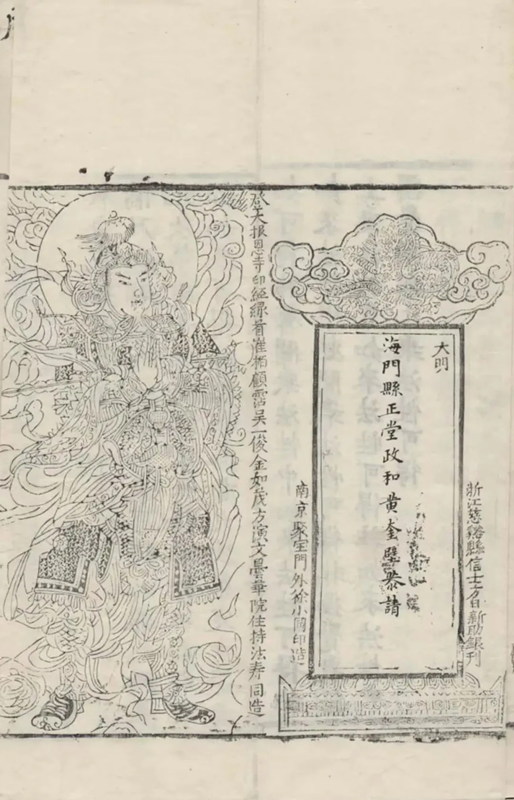 浙江慈谿縣信士方日新助銀刊
大明
海門縣正堂政和黃奎璧恭請
南京聚宝門外徐小園印造
大报恩寺印經緣首淮揚顧霑吴一俊金如茂方演文曇華院住持法寿同造